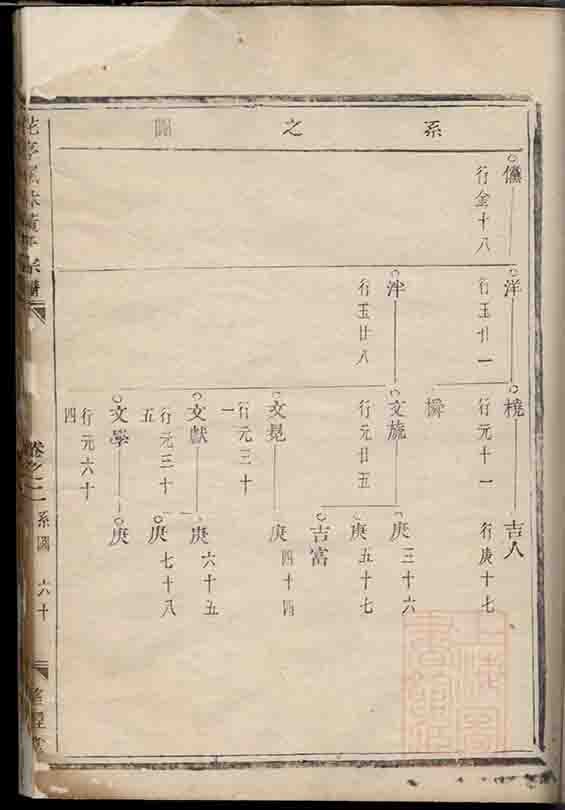 系之圖
儻
行金十八
洋
行玉廿一
泮
行玉廿八
橈
行元十一
橓
文旎
行元廿五
文晃
行元三十一
文獻
行元三十五
文學
行元六十四
吉人
行庚十七
庚三十六
庚五十七
吉富
庚四十四
庚六十五
庚七十八
庚
卷之二
系圖
六十
上海圖書館藏